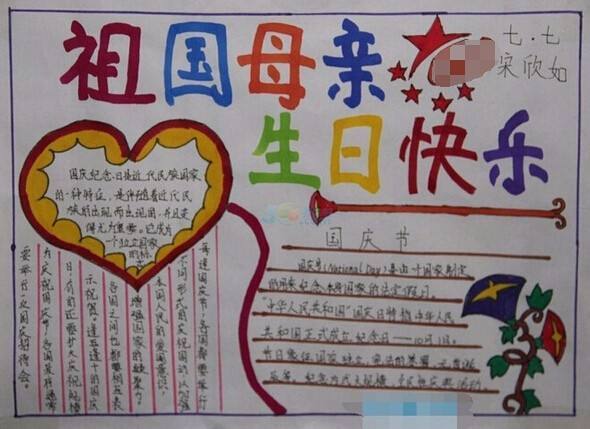 祖国母亲
生日快乐
七.七
宋欣如
国庆纪念日是近代民族国家
的一种特征，是伴随着近代民
族的出现而出现的，并且变
得尤为重要。它成为
一个独立国家
的标
每逢国庆节，各国都要举行
不同形式的庆祝活动，以加强
本国人民的爱国意识，
增强国家的凝聚力。
各国之间也都要相互表
示祝贺。逢五逢十的国庆
日，有的还要扩大庆祝规模
为庆祝国庆节，各国政府通常
要举行一次国庆招待会。
国庆节
国庆节(National Day)是由一个国家制定
的用来纪念本身国家的法定假日。
"中华人民共和国"国庆日特指中华人民
共和国正式成立纪念日——10月1日。